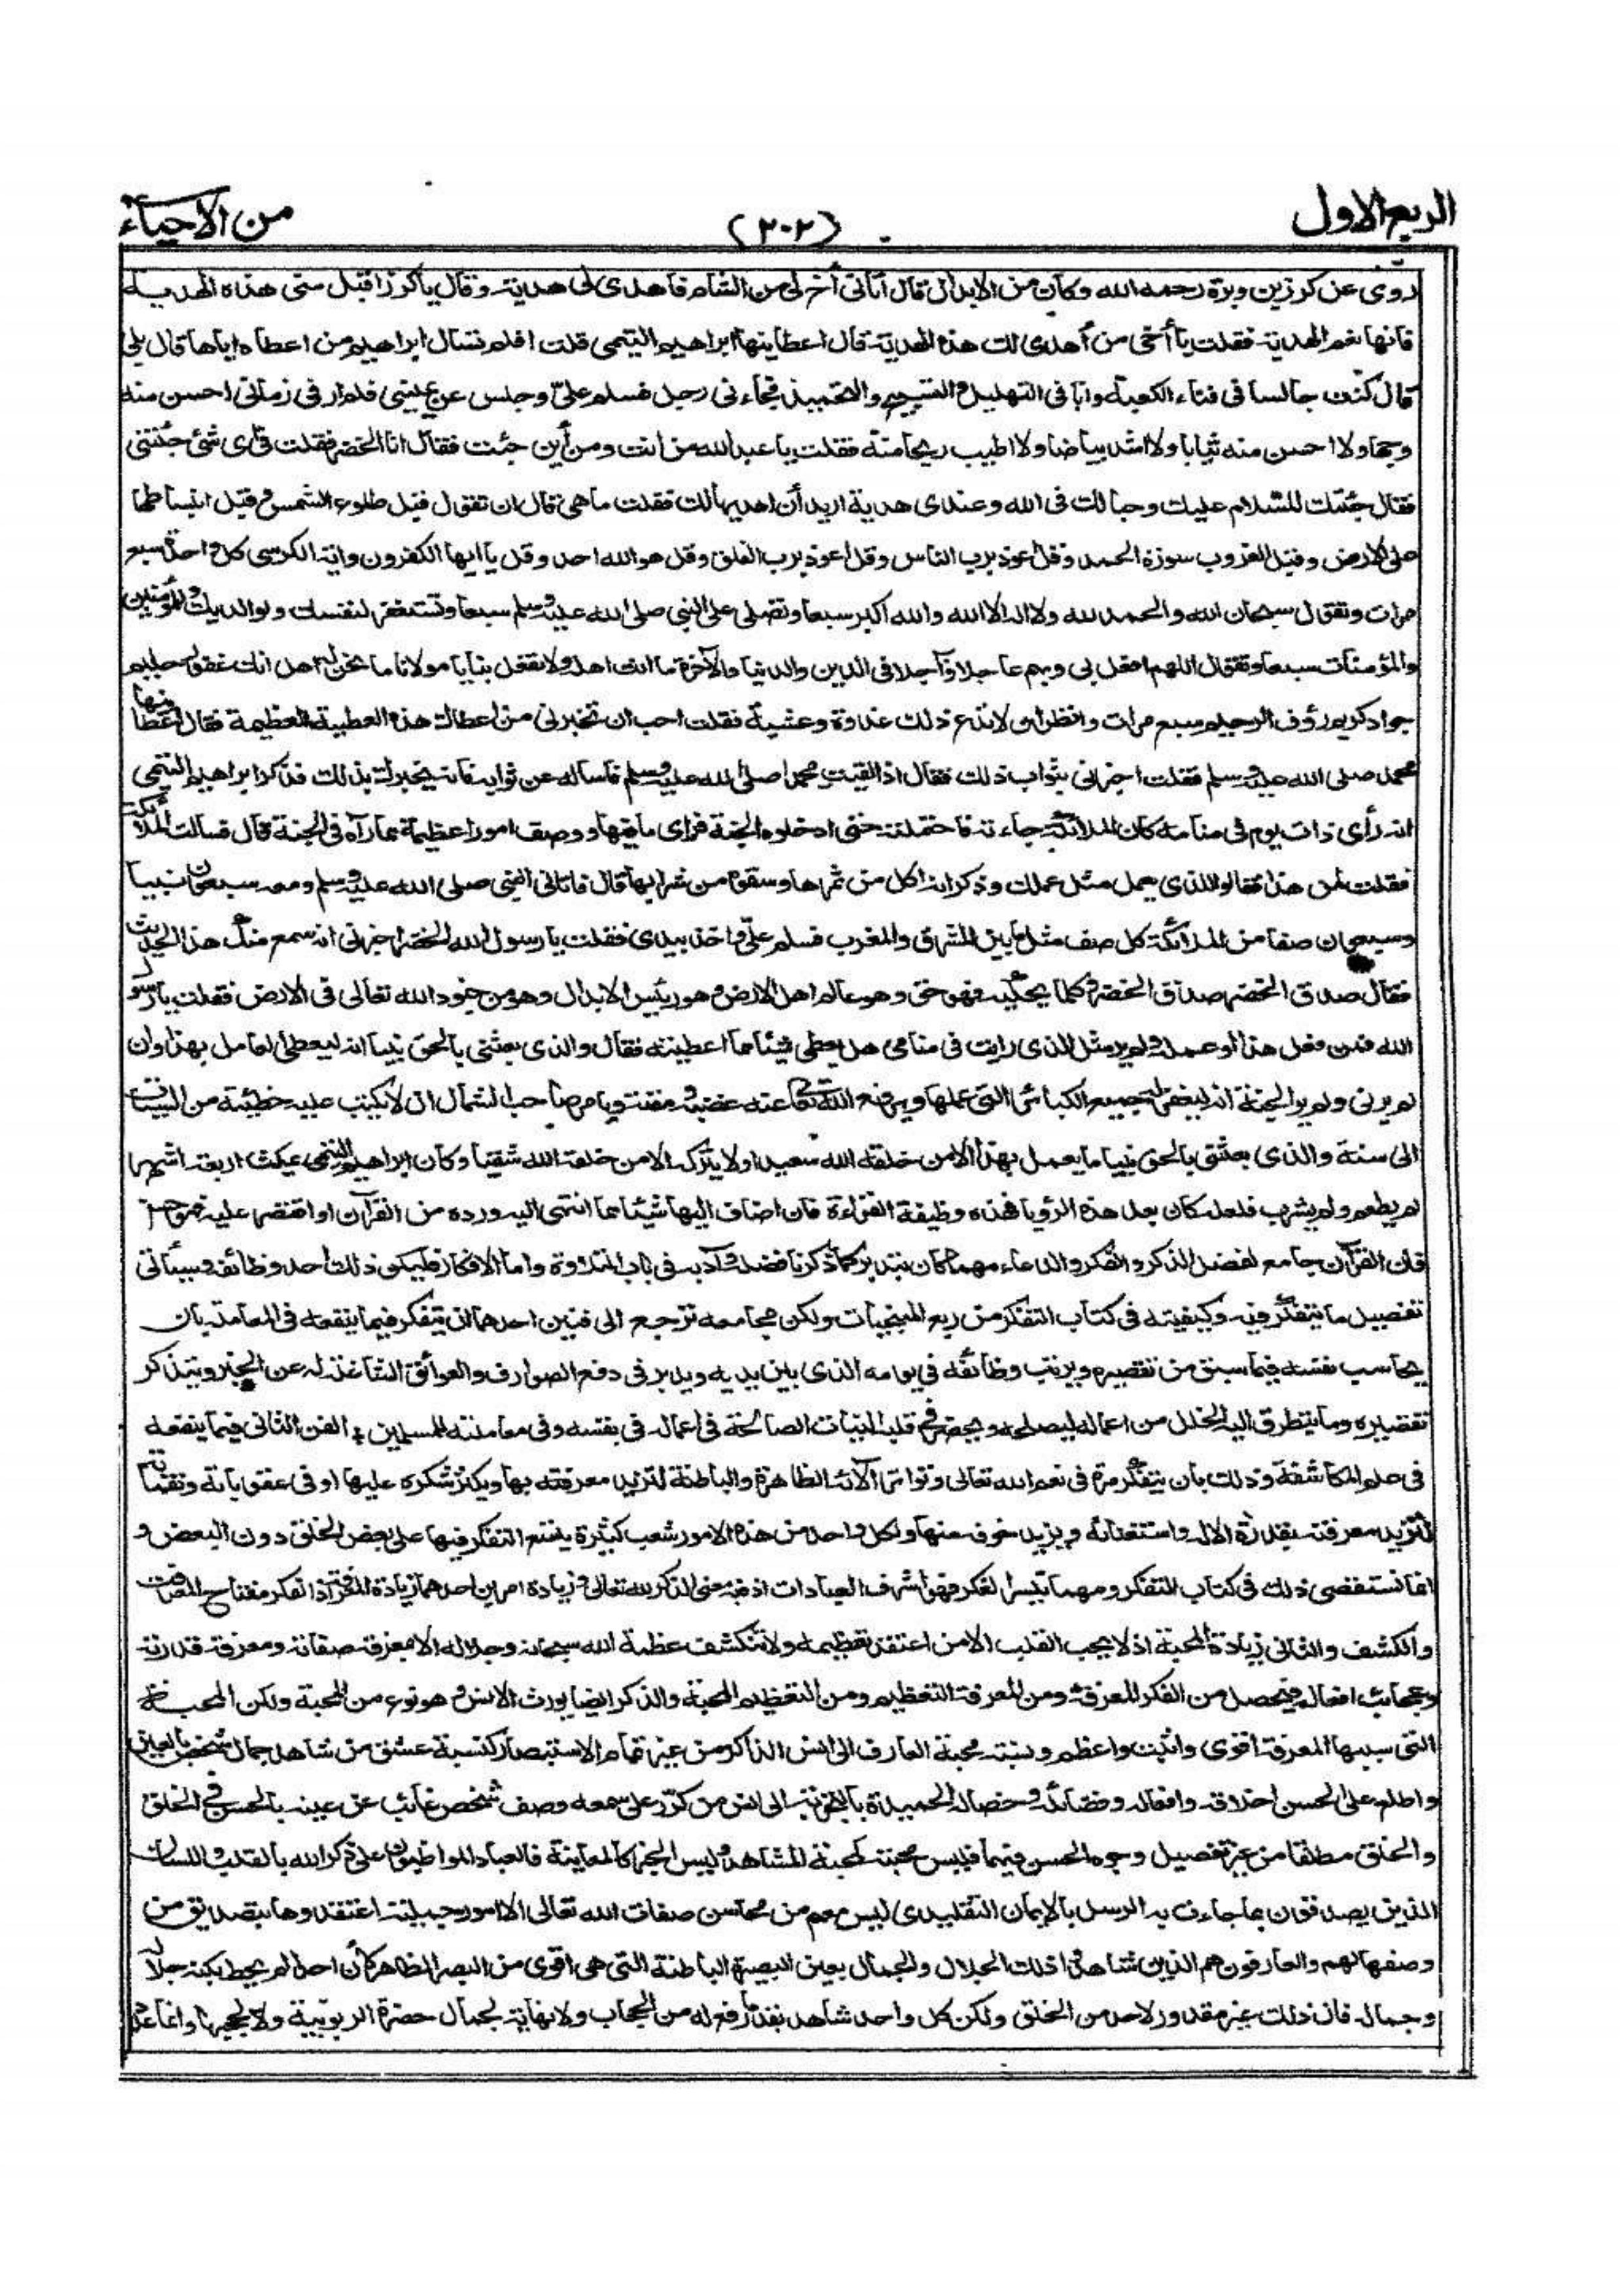 الربع الاول
(٢٠٢)
من الاحياء
روى عن كرز بن وبرة رحمه الله وكان من الابدال قال أتانى أخ لى من الشام فاهدى لى هدية وقال ياكرز اقبل منى هذه الهدية
فانها نعم الهدية فقلت يا أخى من أهدى لك هذه الهدية قال اعطانيها ابراهيم التيمى قلت افلم تسال ابراهيم من اعطاه اياها قال بلى
قال كنت جالسا فى فناء الكعبة وانا فى التهليل والتسبيح والتحميد فجاءنى رجل فسلم علىّ وجلس عن يمينى فلم ار فى زمانى احسن منه
وجها ولا احسن منه ثيابا ولا اشد بياضا ولا اطيب ريحا منه فقلت يا عبد الله من انت ومن أين جئت فقال انا الخضر فقلت فى اى شئ جئتنى
فقال جئتك للسّلام عليك وحبا لك فى الله وعندى هدية اريد أن اهديها لك فقلت ما هى قال ان تقول قبل طلوع الشمس وقبل انبساطها
على الارض وقبل الغروب سورة الحمد وقل اعوذ برب الناس وقل اعوذ برب الفلق وقل هو الله احد وقل يا ايها الكفرون واية الكرسى كل واحدة سبع
مرات وتقول سبحان الله والحمد لله ولا اله الا الله والله اكبر سبعا وتصلى على النبى صلى الله عليه وسلم سبعا وتستغفر لنفسك ولوالديك وللمؤمنين
والمؤمنات سبعا وتقول اللهم افعل بى وبهم عاجلا وآجلا فى الدين والدنيا والآخرة ما انت اهله ولا تفعل بنا يا مولانا ما نحن له اهل انك غفور حليم
جواد كريم رؤف الرحيم سبع مرات وانظر ان لا تدع ذلك غدوة وعشية فقلت احب ان تخبرنى من اعطاك هذه العطية العظيمة فقال اعطانيها
محمد صلى الله عليه وسلم فقلت اخبرنى بثواب ذلك فقال اذا لقيت محمدا صلى الله عليه وسلم فاساله عن ثوابه فانه يخبرك بذلك فذكر ابراهيم التيمى
انه رأى ذات يوم فى منامه كان الملائكة جاءته فاحتملته حتى ادخلوه الجنة فراى ما فيها ووصف امورا عظيمة مما رآه فى الجنة قال فسالت الملائكة
فقلت لمن هذا فقالوا للذى يعمل مثل عملك وذكر انه اكل من ثمرها وسقوه من شرابها قال فاتانى النبى صلى الله عليه وسلم ومعه سبعون نبيا
وسبعون صفا من الملائكة كل صف مثل ما بين المشرق والمغرب فسلم علىّ واخذ بيدى فقلت يا رسول الله الخضر اخبرنى انه سمع منك هذا الحديث
فقال صدق الخضر صدق الخضر وكلما يحكيه فهو حق وهو عالم اهل الارض وهو رئيس الابدال وهو من جنود الله تعالى فى الارض فقلت يا رسول
الله فمن فعل هذا او عمله ولم ير مثل الذى رايت فى منامى هل يعطى شيئا مما اعطيته فقال والذى بعثنى بالحق نبيا انه ليعطى العامل بهذا وان
لم يرنى ولم ير الجنة انه ليغفر له جميع الكبائر التى عملها ويرفع الله تعالى عنه غضبه ومقته ويامر صاحب الشمال ان لا يكتب عليه خطيئة من السيئات
الى سنة والذى بعثنى بالحق نبيا ما يعمل بهذا الا من خلقه الله سعيدا ولا يتركه الا من خلقه الله شقيا وكان ابراهيم التيمى يمكث اربعة اشهر
لم يطعم ولم يشرب فلعله كان بعد هذه الرؤيا فهذه وظيفة القراءة فان اضاف اليها شيئا مما انتهى اليه ورده من القرآن او اقتصر عليه فهو حسن
فان القرآن جامع لفضل الذكر والفكر والدعاء مهما كان بتدبر كما ذكرنا فضله وآدابه فى باب التلاوة واما الافكار فليكن ذلك احد وظائفه وسيأتى
تفصيل ما يتفكر فيه وكيفيته فى كتاب التفكر من ربع المنجيات ولكن مجامعه ترجع الى فنين احدهما ان يتفكر فيما ينفعه فى المعاملة بان
يحاسب نفسه فيما سبق من تقصيره ويرتب وظائفه فى يومه الذى بين يديه ويدبر فى دفع الصوارف والعوائق الشاغلة له عن الخير ويتذكر
تقصيره وما يتطرق اليه الخلل من اعماله ليصلحه ويحضر فى قلبه النيات الصالحة فى اعماله فى نفسه وفى معاملته للمسلمين الفن الثانى فيما ينفعه
فى علم المكاشفة وذلك بان يتفكر مرة فى نعم الله تعالى وتواتر آلائه الظاهرة والباطنة لتزيد معرفته بها ويكثر شكره عليها او فى عقوباته ونقماته
لتزيد معرفته بقدرة الاله واستغنائه ويزيد خوفه منها ولكل واحد من هذه الامور شعب كثيرة يتسع التفكر فيها على بعض الخلق دون البعض و
انما نستقصى ذلك فى كتاب التفكر ومهما تيسر الفكر فهو اشرف العبادات اذ فيه معنى الذكر لله تعالى وزيادة امرين احدهما زيادة المعرفة اذ الفكر مفتاح المعرفة
والكشف والثانى زيادة المحبة اذ لا يحب القلب الا من اعتقد تعظيمه ولا تنكشف عظمة الله سبحانه وجلاله الا بمعرفة صفاته ومعرفة قدرته
وعجائب افعاله فيحصل من الفكر المعرفة ومن المعرفة التعظيم ومن التعظيم المحبة والذكر ايضا يورث الانس وهو نوع من المحبة ولكن المحبة
التى سببها المعرفة اقوى واثبت واعظم ونسبة محبة العارف الى انس الذاكر من غير تمام الاستبصار كنسبة عشق من شاهد جمال شخص بالعين
واطلع على الحسن اخلاقه وافعاله وفضائله وخصاله الحميدة بالتجربة الى انس من كرّر على سمعه وصف شخص غائب عن عينه بالحسن فى الخلق
والخلق مطلقا من غير تفصيل وجوه الحسن فيهما فليس محبته له كمحبة المشاهد وليس الخبر كالمعاينة فالعباد المواظبون على ذكر الله بالقلب واللسان
الذين يصدقون بما جاءت به الرسل بالايمان التقليدى ليس معهم من محاسن صفات الله تعالى الا امور جميلة اعتقدوها بتصديق من
وصفها لهم والعارفون هم الذين شاهدوا ذلك الجلال والجمال بعين البصيرة الباطنة التى هى اقوى من البصر الظاهر كأن احدا لم يحط بكنه جلاله
وجماله فان ذلك غير مقدور لاحد من الخلق ولكن كل واحد شاهد بقدر ما رفع له من الحجاب ولا نهاية لجمال حضرة الربوبية ولا لحجبها وانما عدد